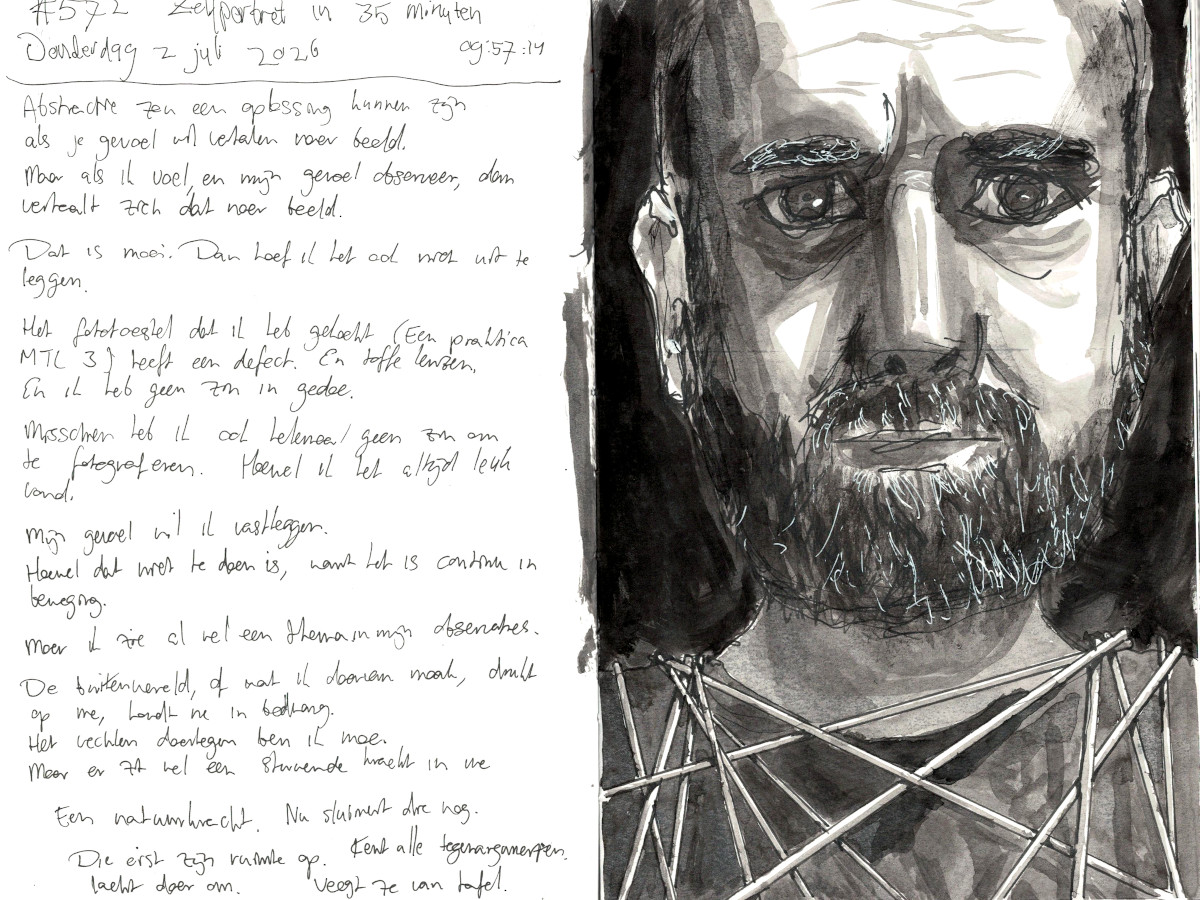 #572 Zelfportret in 35 minuten
Donderdag 2 juli 2026 09:57:14
Abstractie zou een oplossing kunnen zijn
als je gevoel wil vertalen naar beeld.
Maar als ik voel, en mijn gevoel observeer, dan
vertaalt zich dat naar beeld.
Dat is mooi. Dan hoef ik het ook niet uit te
leggen.
Het fototoestel dat ik heb gekocht (Een praktica
MTL 3) heeft een defect. En toffe lenzen.
En ik heb geen zin in gedoe.
Misschien heb ik ook helemaal geen zin om
te fotograferen. Hoewel ik het altijd leuk
vond.
Mijn gevoel wil ik vastleggen.
Hoewel dat niet te doen is, want het is continu in
beweging.
Maar ik zie al wel een thema in mijn observaties.
De buitenwereld, of wat ik daarvan maak, drukt
op me, houdt me in bedwang.
Het vechten daartegen ben ik moe.
Maar er zit wel een stuwende kracht in me
Een natuurkracht. Nu sluimert die nog.
Die eist zijn ruimte op. Kent alle tegenargumenten.
lacht daar om. Veegt ze van tafel.